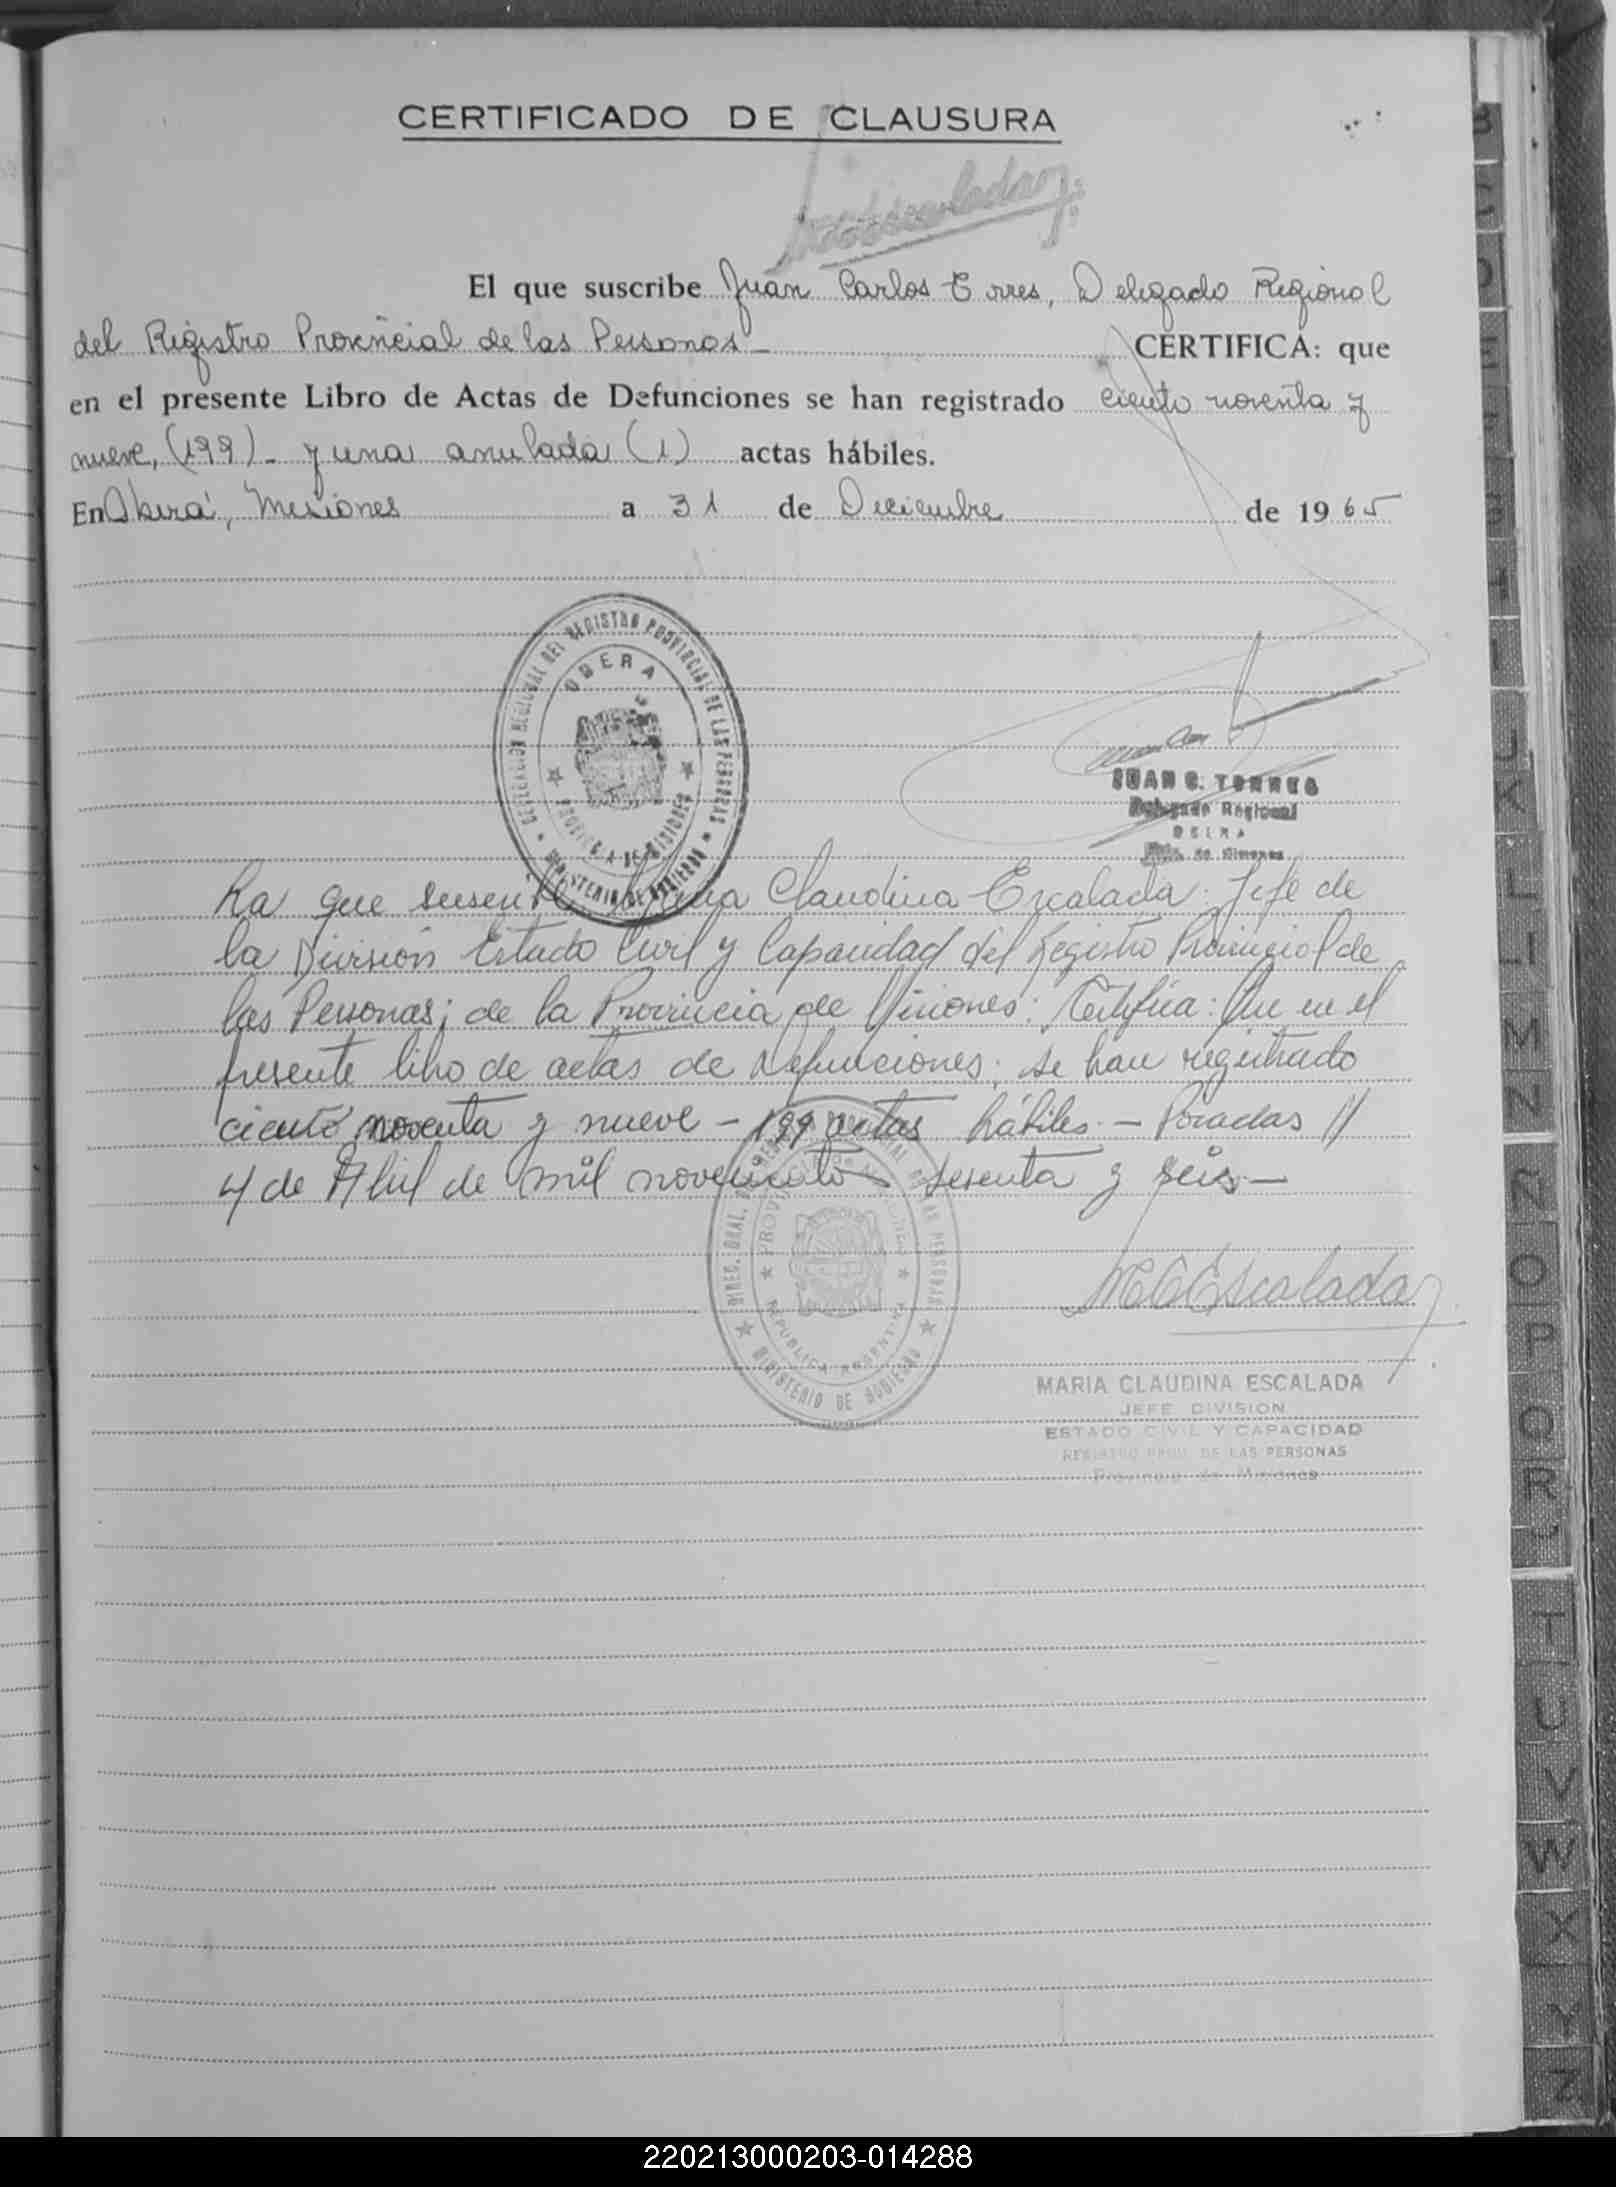 CERTIFICADO DE CLAUSURA
El que suscribe Juan Carlos Torres, Delegado Regional
del Registro Provincial de las Personas CERTIFICA: que
en el presente Libro de Actas de Defunciones se han registrado ciento noventa y
nueve, (199) - y una anulada (1) actas hábiles.
En Oberá, Misiones a 31 de Diciembre de 1965
DELEGACION REGIONAL DEL REGISTRO PROVINCIAL DE LAS PERSONAS
OBERA
PROVINCIA DE MISIONES
MINISTERIO DE GOBIERNO
JUAN C. TORRES
Delegado Regional
OBERA
Pcia. de Misiones
La que suscribe Maria Claudina Escalada. Jefe de
la División Estado Civil y Capacidad del Registro Provincial de
las Personas; de la Provincia de Misiones: Certifica: Que en el
presente libro de actas de Defunciones; se han registrado
ciento noventa y nueve - 199 actas hábiles. - Posadas //
4 de Abril de mil novecientos sesenta y seis -
MCEscalada
PROVINCIA DE MISIONES
REPUBLICA ARGENTINA
MINISTERIO DE GOBIERNO
MARIA CLAUDINA ESCALADA
JEFE DIVISION
ESTADO CIVIL Y CAPACIDAD
REGISTRO PROV. DE LAS PERSONAS
Provincia de Misiones
B
C
D
E
F
G
H
I
J
K
L
LL
M
N
Ñ
O
P
Q
R
T
U
V
W
X
Y
Z
220213000203-014288